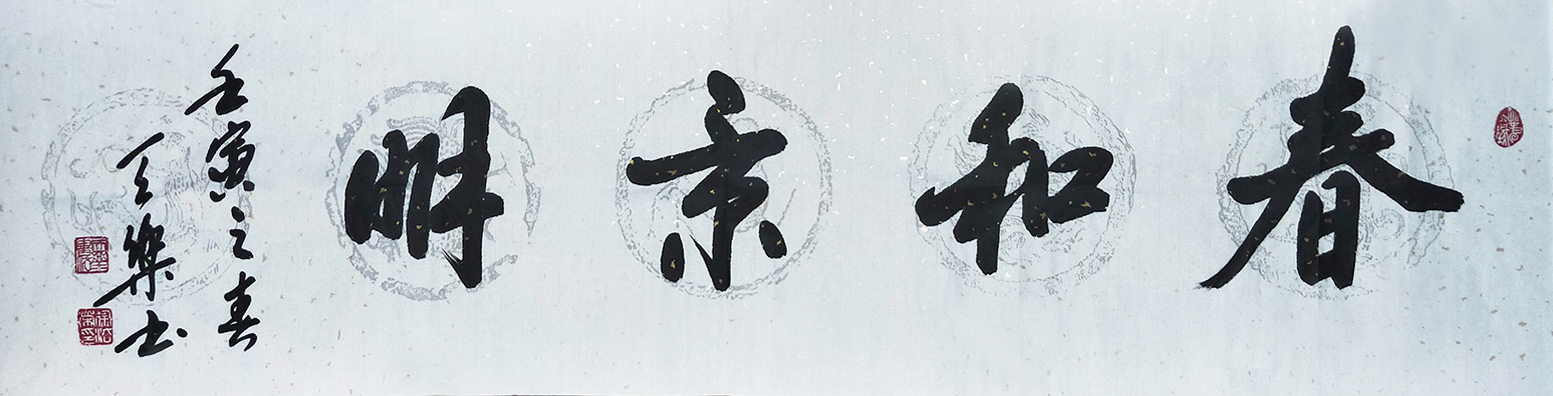 春和景明
壬寅之春
天樂书